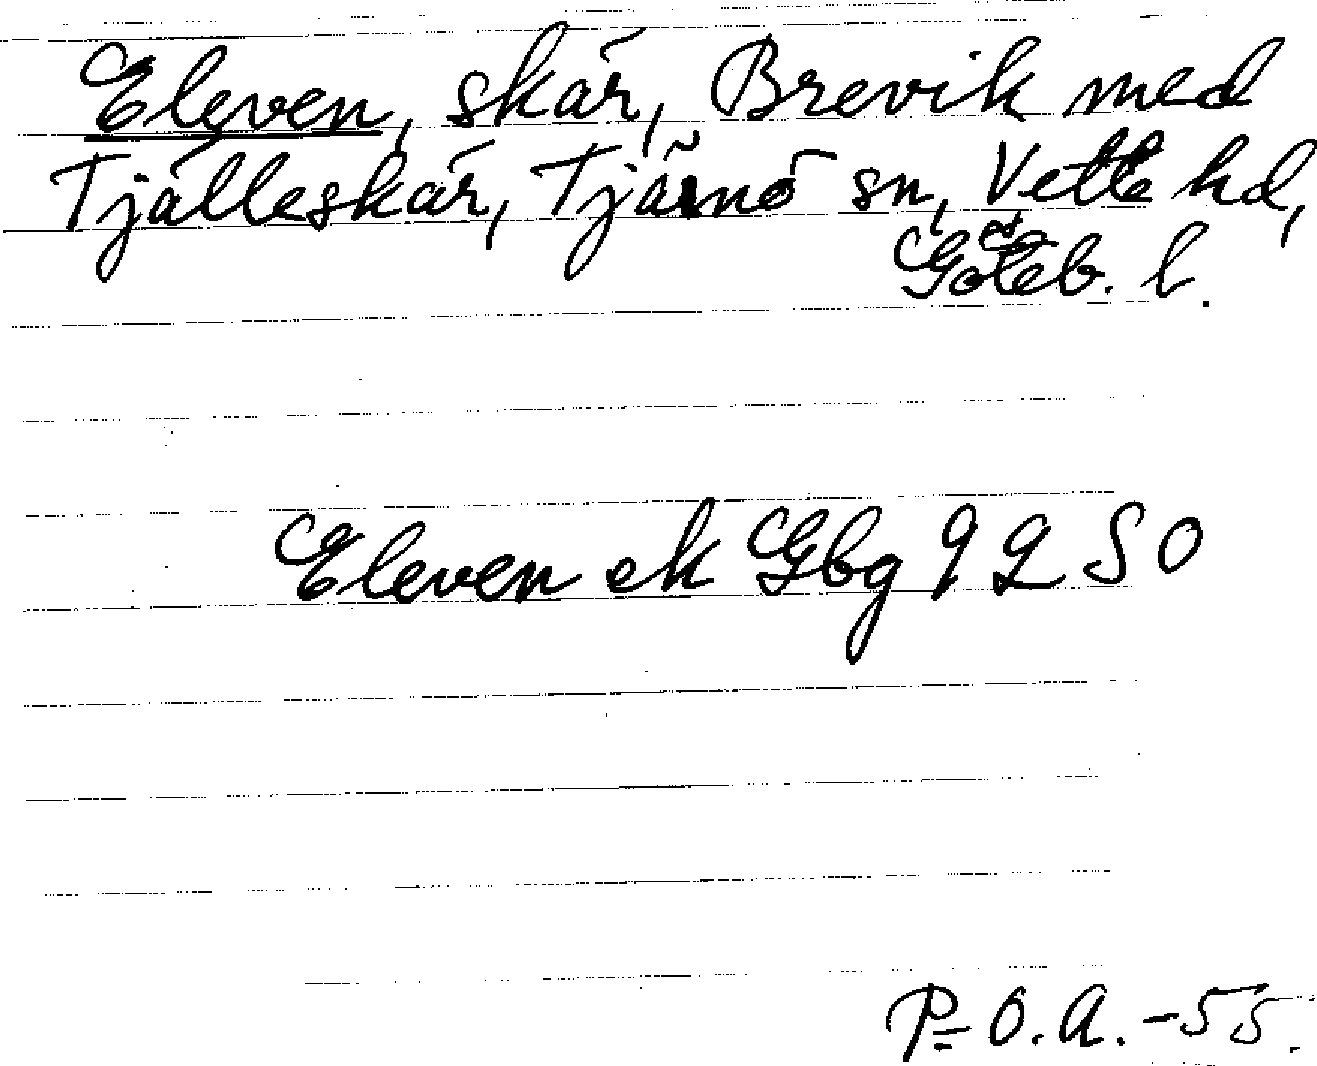 Eleven, skär, Brevik med
Tjälleskär, Tjärnö sn, Vette hd,
Göteb. l.
Eleven ek Gbg 9 2 S O
P-O.A.-55.